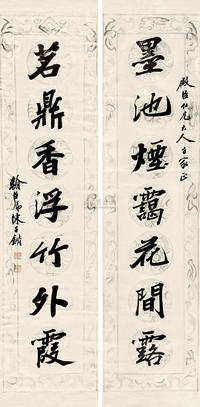 墨池煙靄花間露
茗鼎香浮竹外霞
殿臣仁兄大人方家正